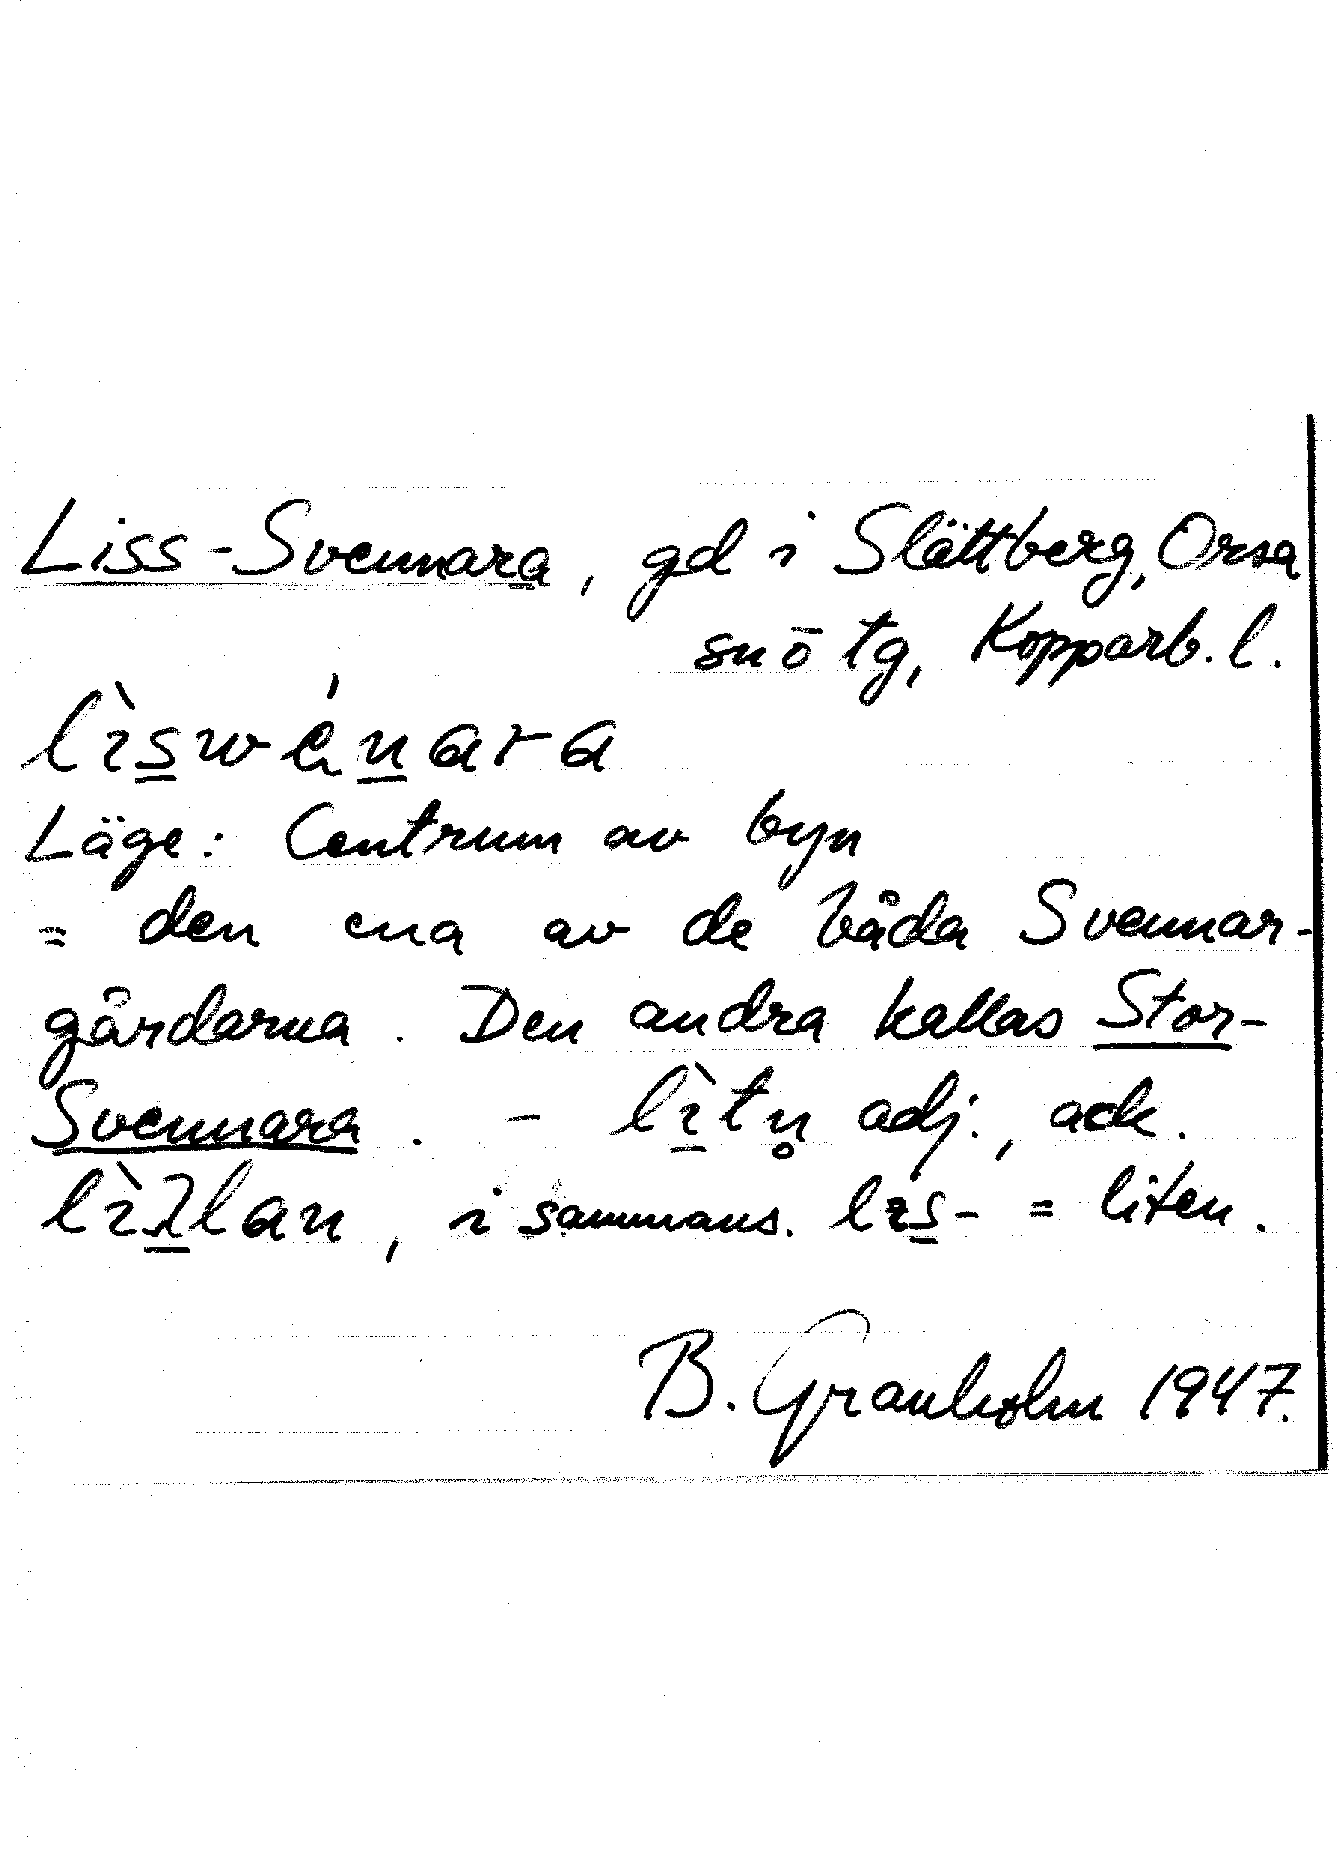 Liss-Svennara, gd i Slättberg, Orsa
sn ō tg, Kopparb. l.
lìs̲wén̲ara
Läge: Centrum av byn
= den ena av de båda Svennar-
gårdarna. Den andra kallas Stor-
Svennara. - lì̲tn̥ adj., ack.
lìλ̲lan, i sammans. lıs̲- = liten.
B. Granholm 1947.